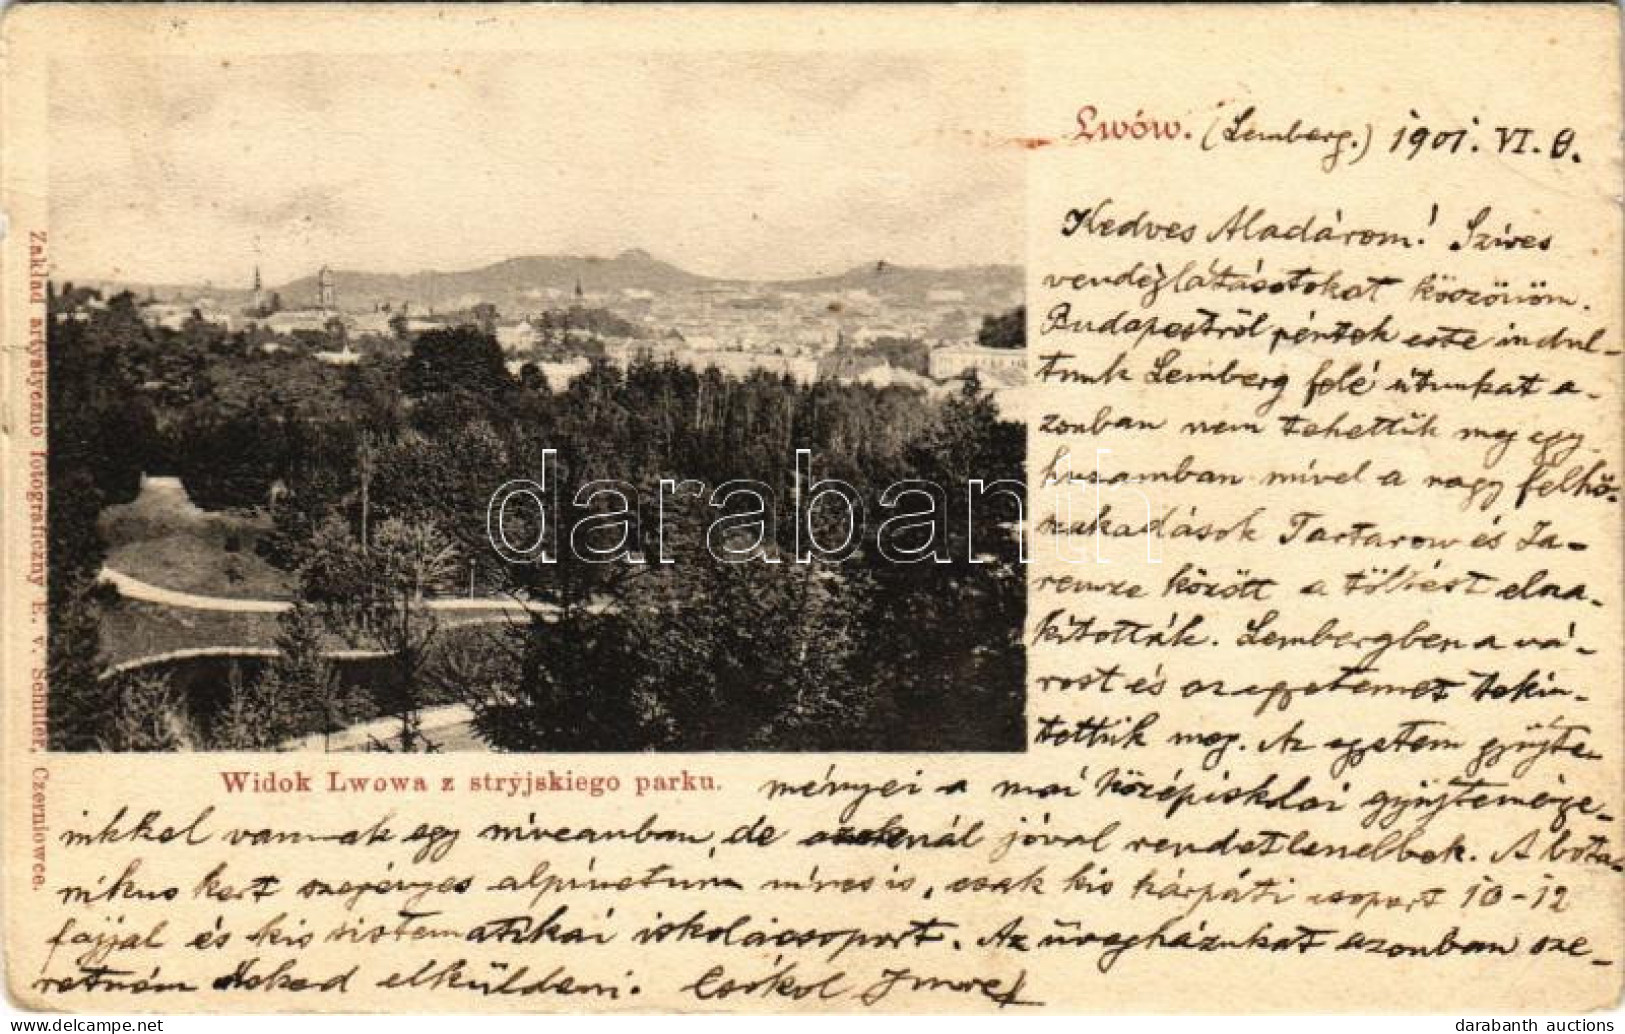 Lwów. (Lemberg.) 1901. VI. 8.
Kedves Aladárom! Szives
vendéglátásotokat köszönöm.
Budapestről péntek este indul-
tunk Lemberg felé útunkat a-
zonban nem tehettük meg egy
huzamban mivel a nagy felhő-
szakadások Tartarow és Ja-
remze között a töltést elsza-
kították. Lembergben a vá-
rost és az egyetemet tekin-
tettük meg. Az egyetem gyüjte-
ményei a mai középiskolai gyüjtemége-
inkkel vannak egy niveauban, de azoknál jóval rendetlenebbek. A bota-
nikus kert szegényes alpinetum nincs is, csak kis kárpáti csoport 10-12
fajjal és kis sistematikai iskolacsoport. Az üvegházukat azonban sze-
retném Neked elküldeni. Csókol Imre
Widok Lwowa z stryjskiego parku.
Zakład artystyczno fotograficzny E. v. Schiller, Czerniowce.
darabanth
darabanth auctions